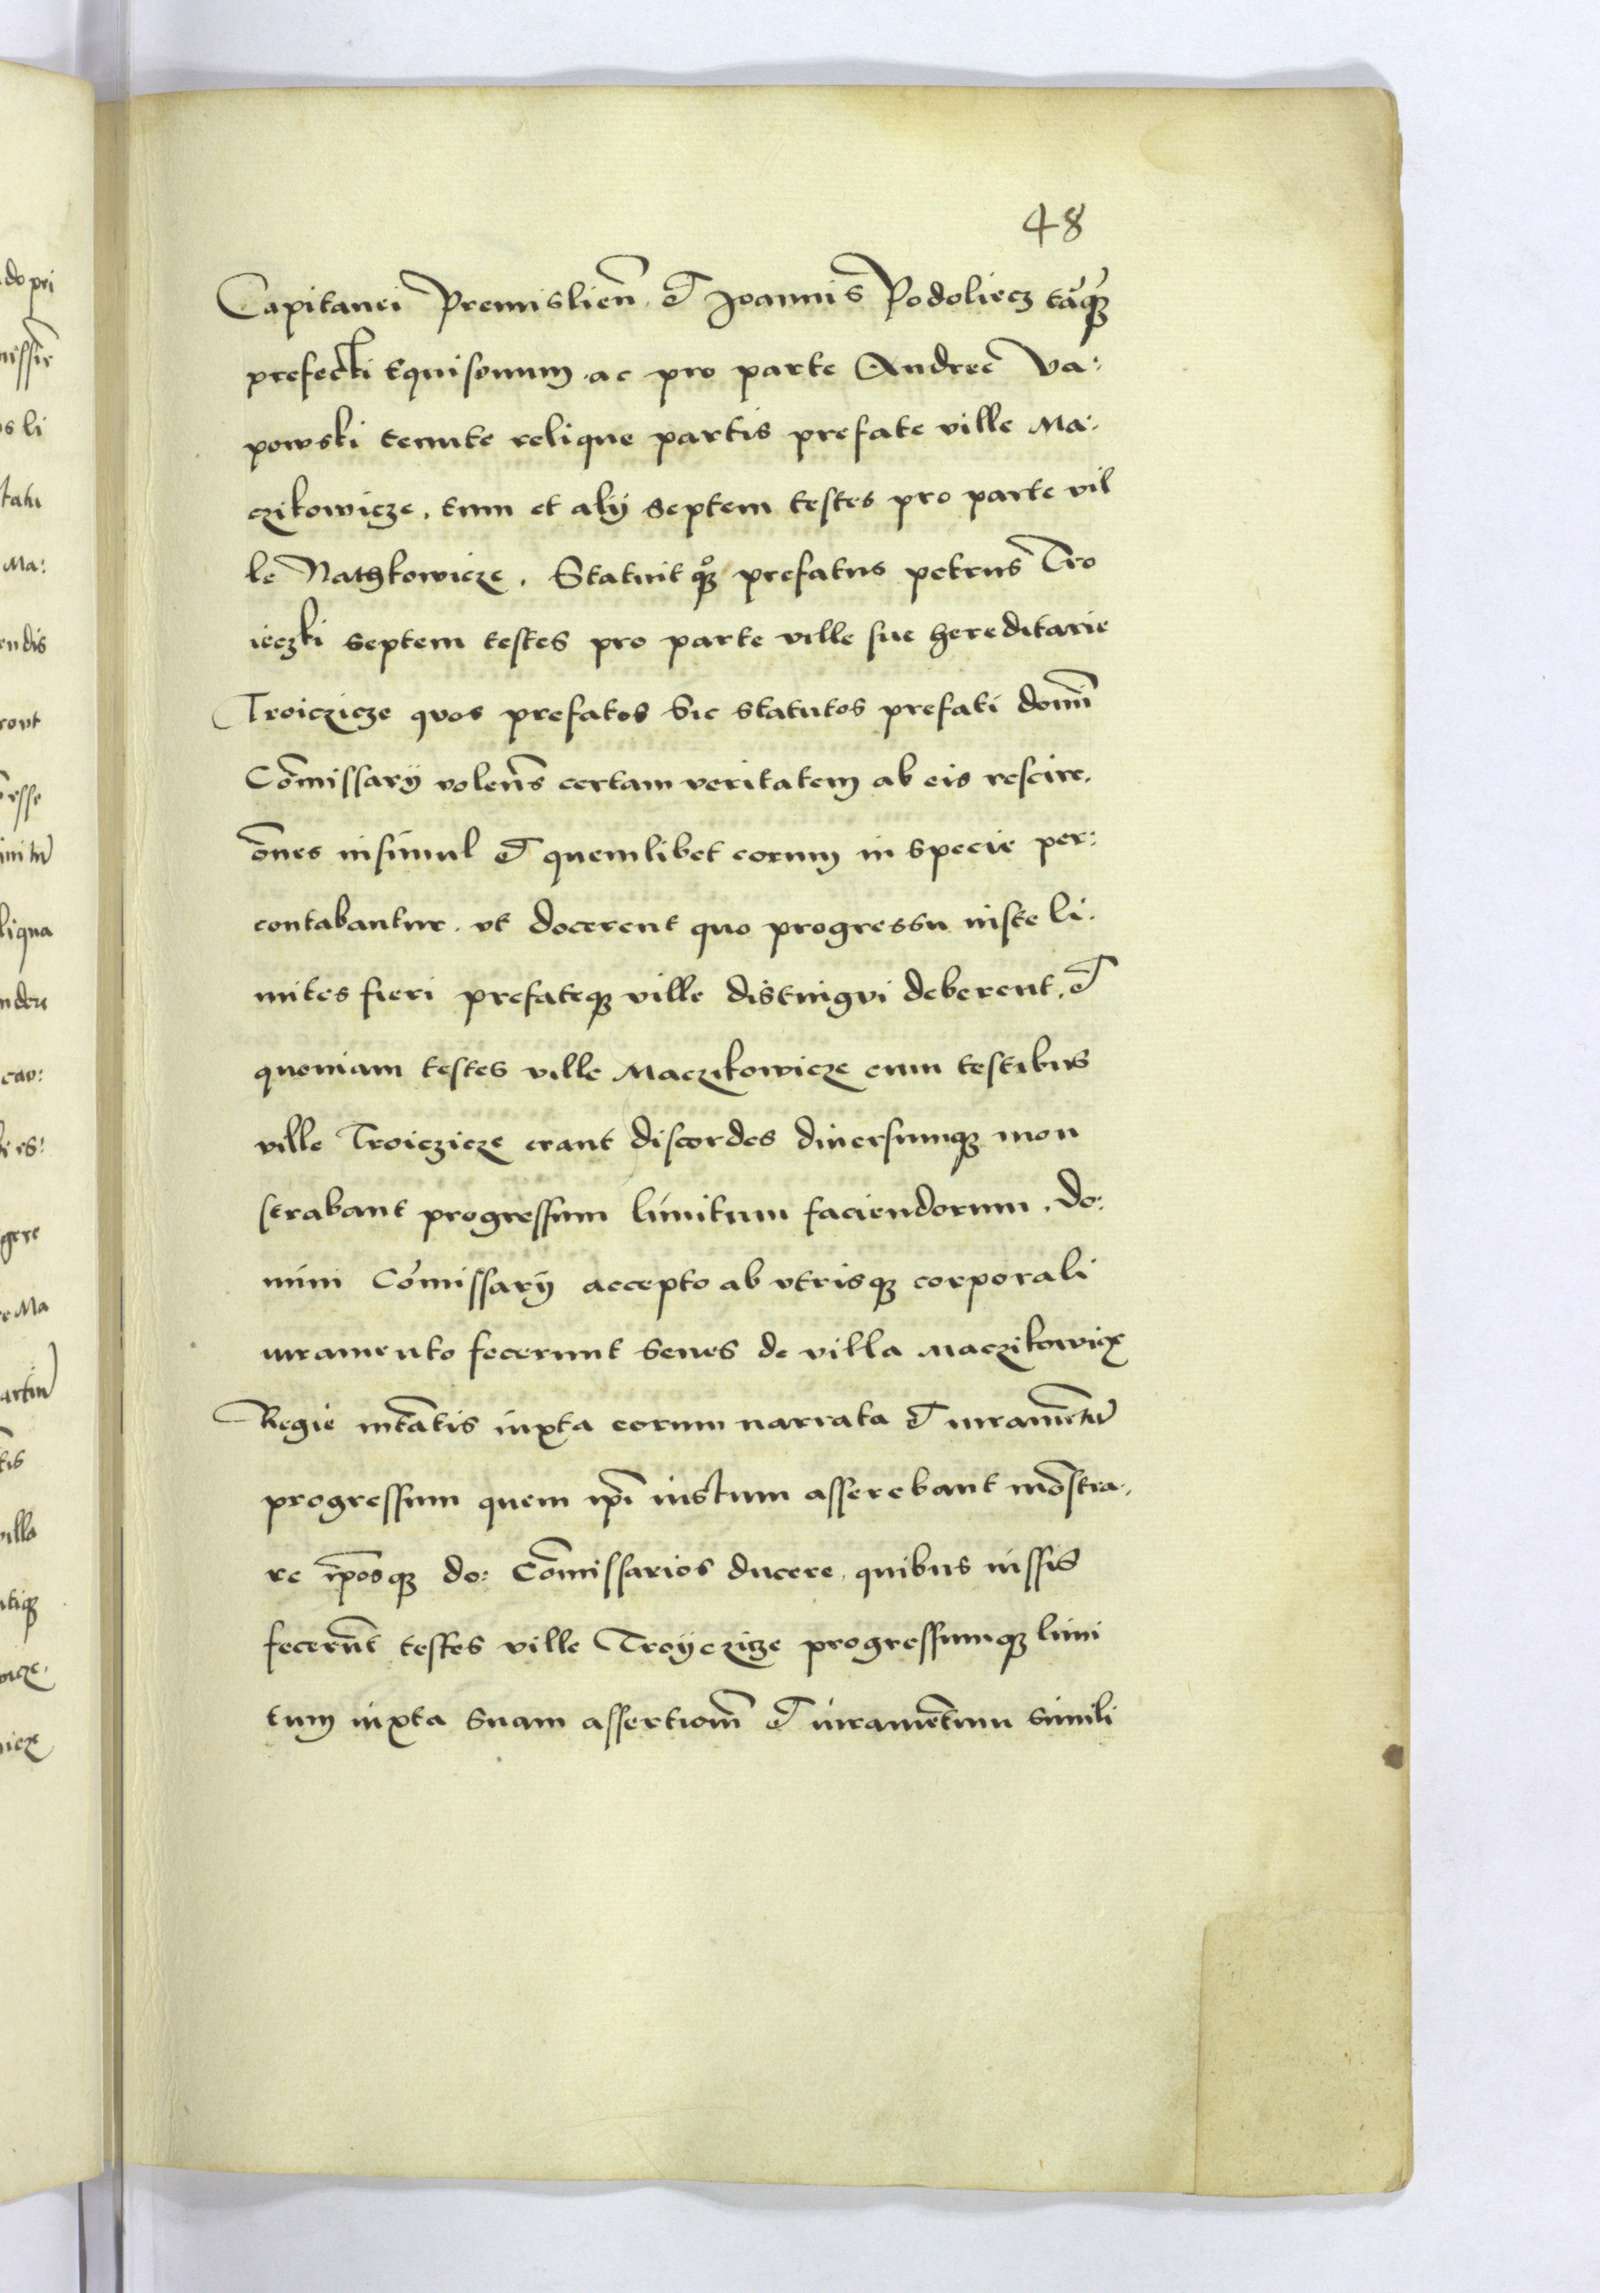 48
Capitanei Premislien̄ et Joannis Podoliecz tāqȝ
prefecti Equisonum ac pro parte Andree Va:
powski tenute relique partis prefate ville Ma:
czikowicze, tum et alÿ septem testes pro parte vil
le Nathkowicze. Statuit qȝ prefatus petrus Tro
ieczki septem testes pro parte ville sue hereditarie
Troiczicze quos prefatos sic statutos prefati domī
Cōmissarÿ volens certam veritatem ab eis rescire,
ōnes insimul et quemlibet eorum in specie per:
contabantur, vt docerent quo progressu iuste li.
mites fieri prefateqȝ ville distingvi deberent, et
quoniam testes ville Maczikowicze cum testibus
ville Troiczicze erant discordes diuersumqȝ mon
strabant progressum limitum faciendorum, do:
mini Cōmissarÿ accepto ab vtrisqȝ corporali
iuramento fecerunt senes de villa Maczikowicze
Regie mtātis iuxta eorum narrata et iuramentū
progressum quem ip̄i iustum asserebant mōstra,
re ip̄osqȝ do: Cōmissarios ducere, quibus iussis
fecerūt testes ville Troÿczicze progressumqȝ limi
tum iuxta suam assertionē et iuramētum simili
do pri
s li
Ma:
endis
liqua
cav:
gere
villa